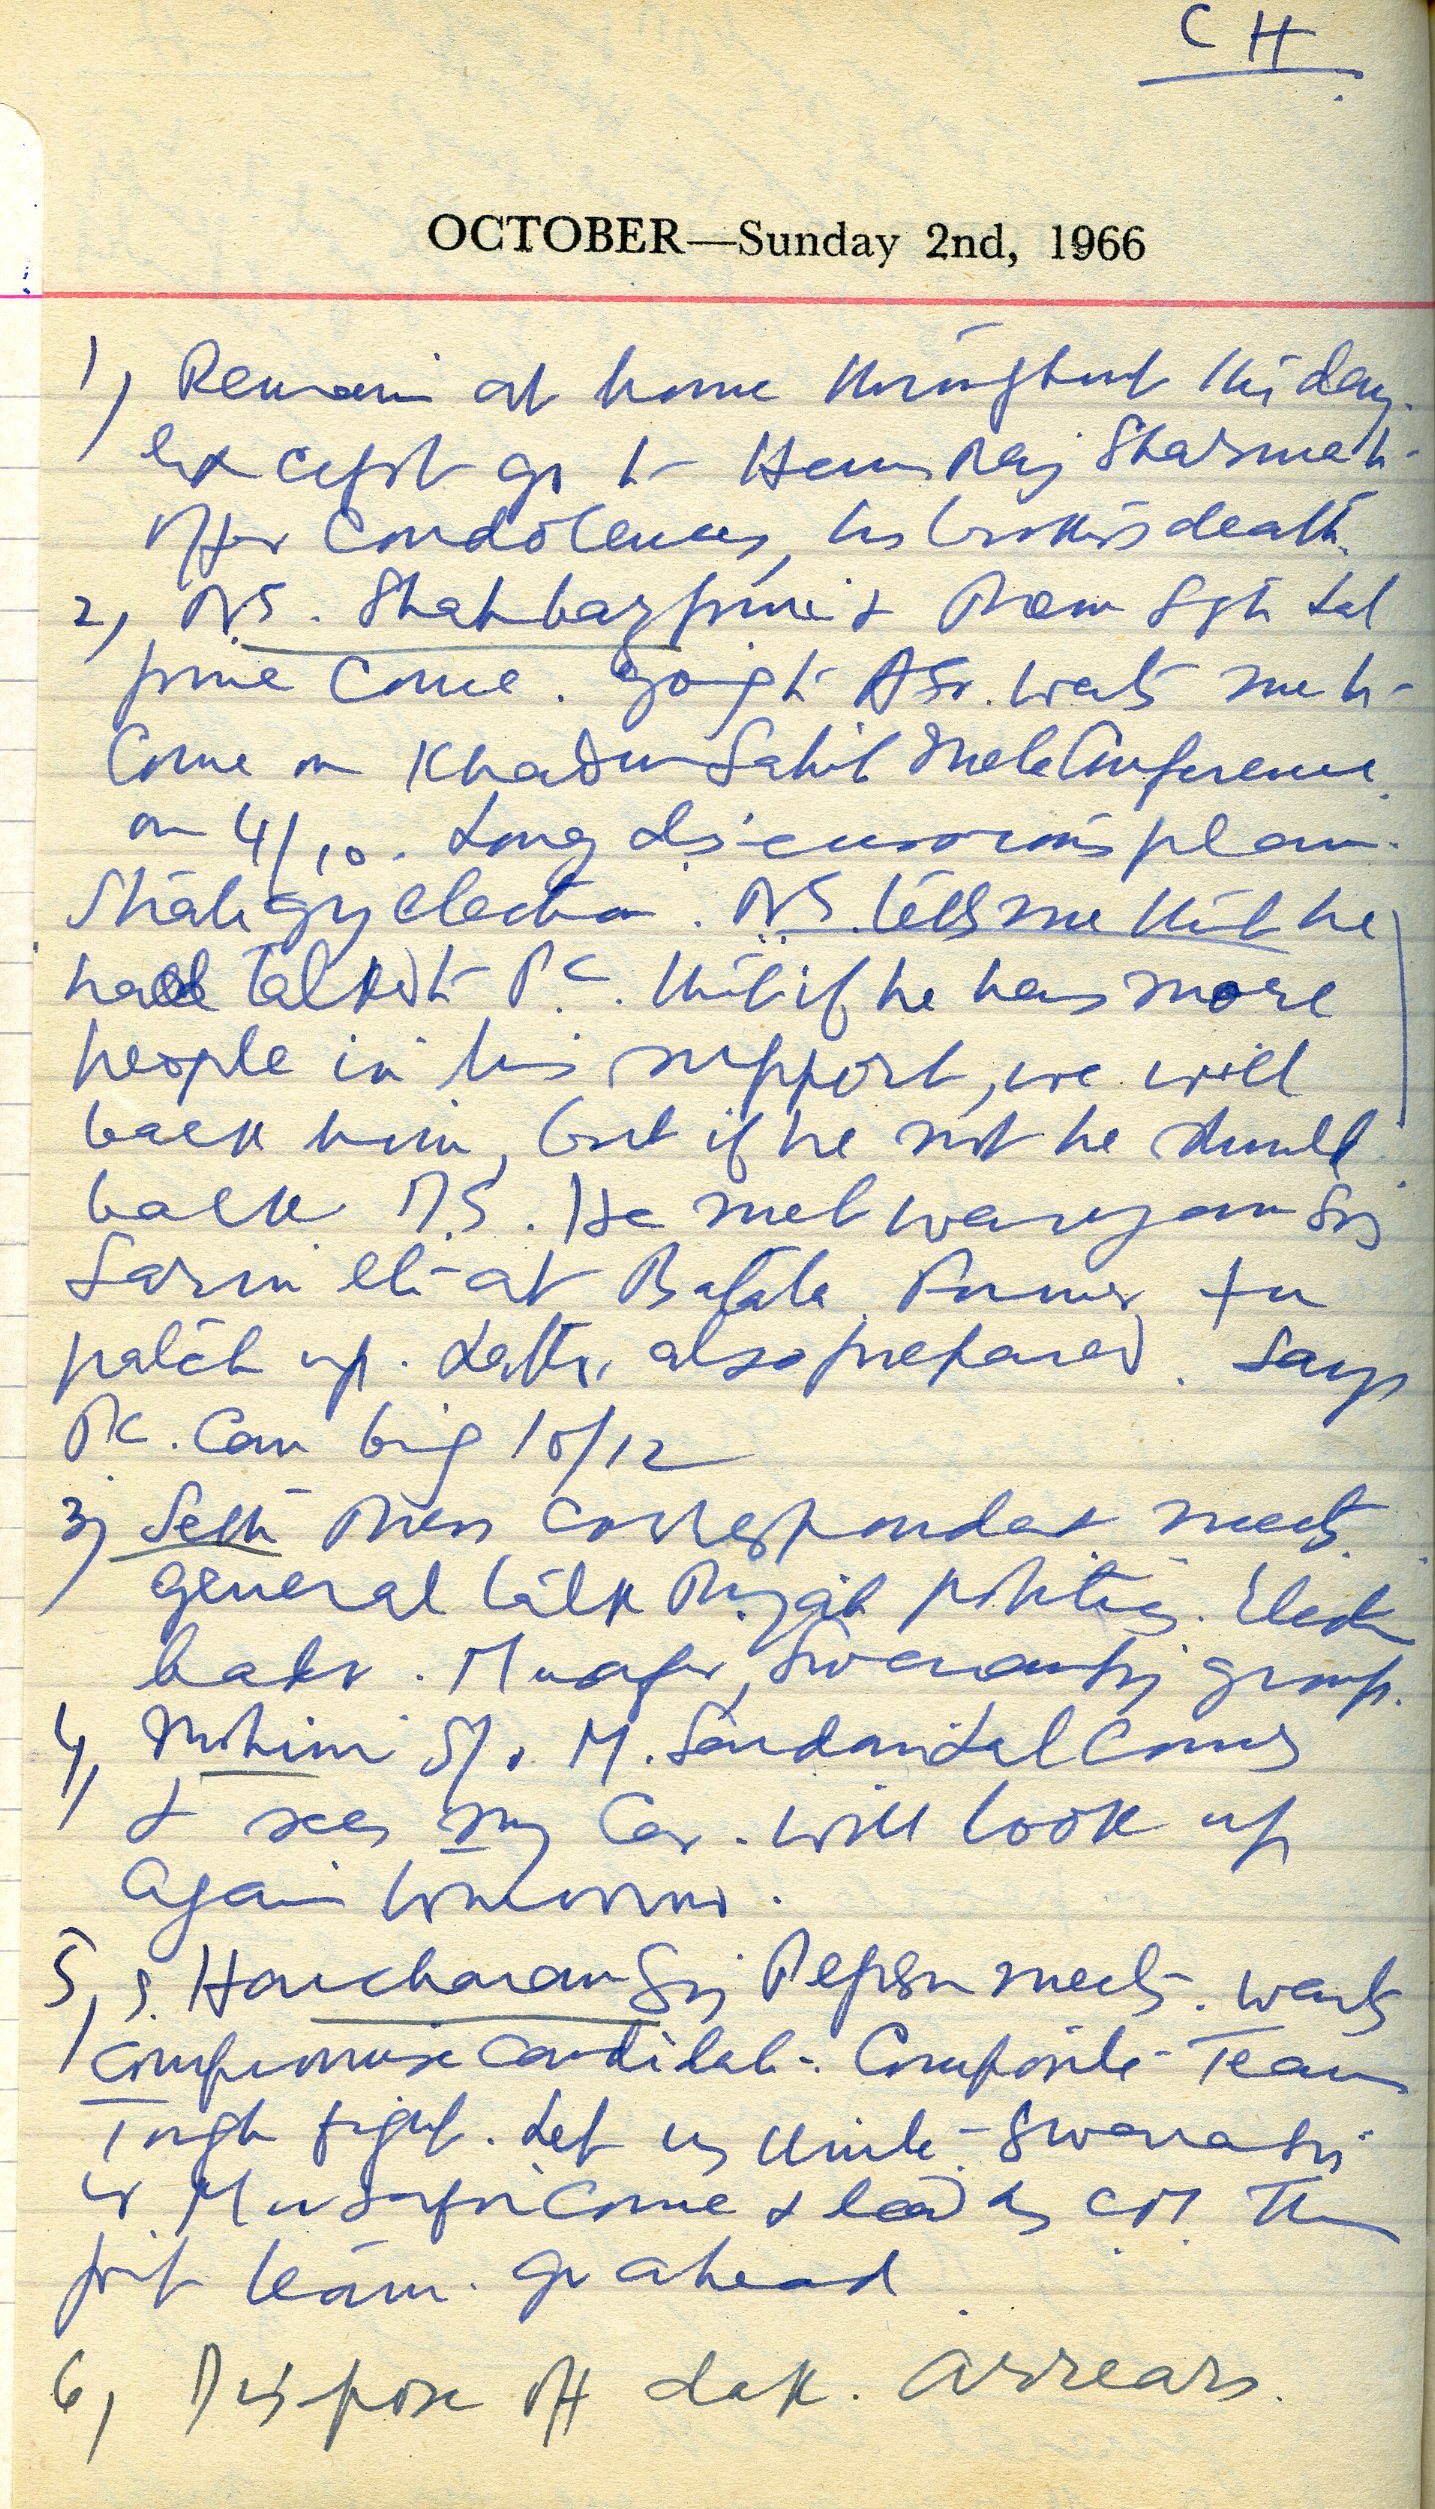 CH
OCTOBER—Sunday 2nd, 1966
1, Remain at home throughout the day.
except go to Hans Raj Sharma to
offer condolences, his brother's death.
2, Shahbazpuri & Prem Sgh Lal
pura come. going to ASr. wants me to
come on Khadur Sahib Mela Conference
on 4/10. Long discussions plan.
Strategy election. NS. tells me that he
had talked to PC. that if he has more
people in his support, we will
back him, but if he not he should
back. He met Waryam Sg
at Batala. Former for
patch up. Latter also prepared. Says
PC. Can big 10/12
3, Seth Press correspondent meets
general talk Punjab politics. Election
Musafir, Swaransg group.
4, Mohini S/o. M. Sundar Lal comes
& sees my Car. will look up
again tomorrow.
5, S. Harcharan Sg Pepsu meets. wants
compromise candidate. Composite Team
Tough fight. Let us unite. Swaran Sg
or Musafir come & lead as CM. Then
joint team. go ahead
6, Dispose off dak. arrears.